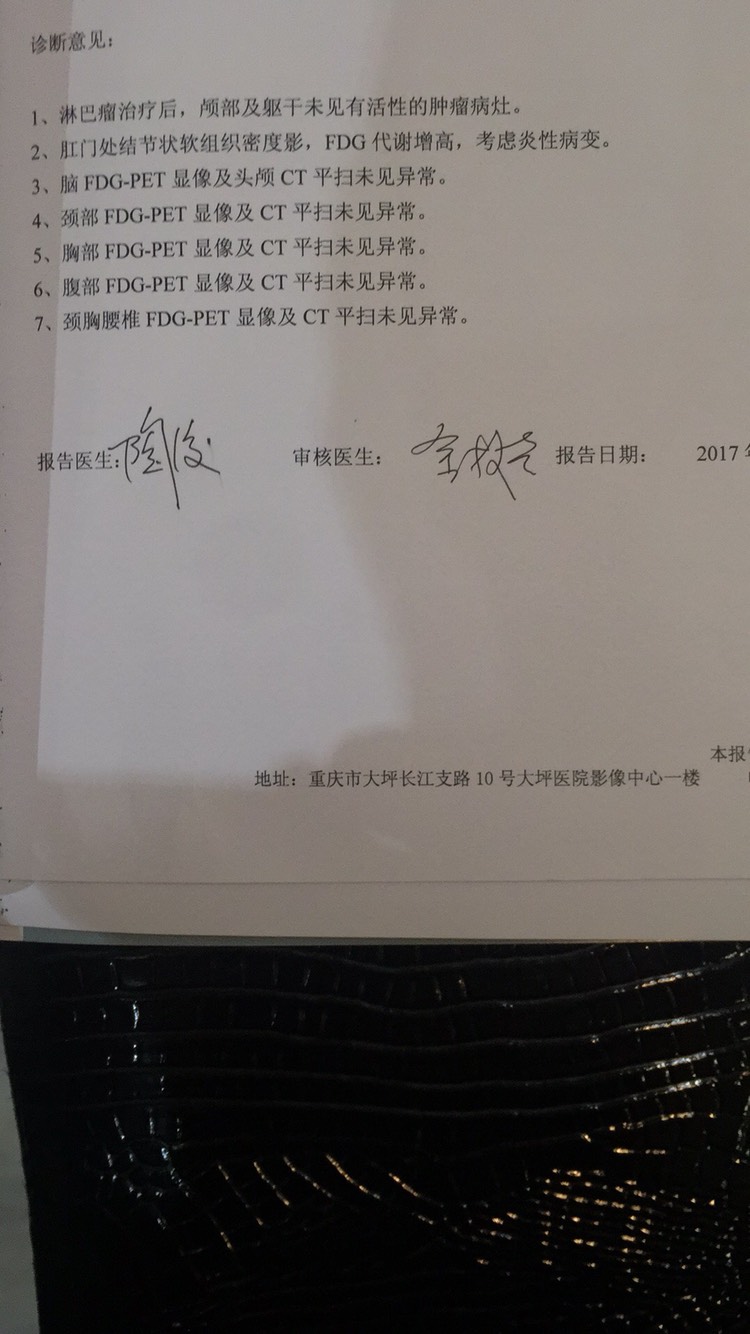 诊断意见：
1、淋巴瘤治疗后，颅部及躯干未见有活性的肿瘤病灶。
2、肛门处结节状软组织密度影，FDG 代谢增高，考虑炎性病变。
3、脑 FDG-PET 显像及头颅 CT 平扫未见异常。
4、颈部 FDG-PET 显像及 CT 平扫未见异常。
5、胸部 FDG-PET 显像及 CT 平扫未见异常。
6、腹部 FDG-PET 显像及 CT 平扫未见异常。
7、颈胸腰椎 FDG-PET 显像及 CT 平扫未见异常。
报告医生： 审核医生： 报告日期： 2017
本报
地址：重庆市大坪长江支路 10 号大坪医院影像中心一楼